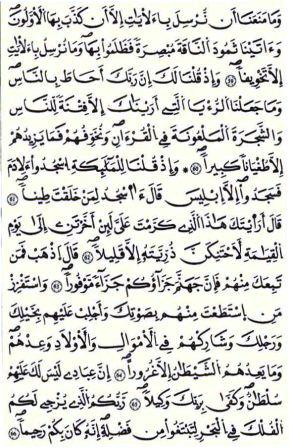 وَمَا مَنَعَنَآ أَن نُّرْسِلَ بِالَايَٰتِ إِلَّآ أَن كَذَّبَ بِهَا اَلَاوَّلُونَ
وَءَاتَيْنَا ثَمُودَ اَلنَّاقَةَ مُبْصِرَةً فَظَلَمُواْ بِهَا وَمَا نُرْسِلُ بِالَايَٰتِ
إِلَّا تَخْوِيفًا وَإِذْ قُلْنَا لَكَ إِنَّ رَبَّكَ أَحَاطَ بِالنَّاسِ
وَمَا جَعَلْنَا اَلرُّءْيَا اَلَّتِےٓ أَرَيْنَٰكَ إِلَّا فِتْنَةً لِّلنَّاسِ
وَالشَّجَرَةَ اَلْمَلْعُونَةَ فِے اِلْقُرْءَانِ وَنُخَوِّفُهُمْ فَمَا يَزِيدُهُمُۥٓ
إِلَّا طُغْيَٰنًا كَبِيرًا وَإِذْ قُلْنَا لِلْمَلَٰٓئِكَةِ اِ۟سْجُدُواْ لِأَدَمَ
فَسَجَدُوٓاْ إِلَّآ إِبْلِيسَ قَالَ ءَآسْجُدُ لِمَنْ خَلَقْتَ طِينًا
قَالَ أَرَٰيْتَكَ هَٰذَا اَلَّذِے كَرَّمْتَ عَلَىَّ لَئِنَ اَخَّرْتَنِۦٓ إِلَىٰ يَوْمِ
اِلْقِيَٰمَةِ لَأَحْتَنِكَنَّ ذُرِّيَّتَهُۥٓ إِلَّا قَلِيلًا قَالَ اَ۪ذْهَبْ فَمَن
تَبِعَكَ مِنْهُمْ فَإِنَّ جَهَنَّمَ جَزَآؤُكُمْ جَزَآءً مَّوْفُورًا وَاسْتَفْزِزْ
مَنِ اِ۪سْتَطَعْتَ مِنْهُم بِصَوْتِكَ وَأَجْلِبْ عَلَيْهِم بِخَيْلِكَ
وَرَجْلِكَ وَشَارِكْهُمْ فِے اِلَامْوَٰلِ وَالَاوْلَٰدِ وَعِدْهُمْ
وَمَا يَعِدُهُمُ اُ۬لشَّيْطَٰنُ إِلَّا غُرُورًا إِنَّ عِبَادِے لَيْسَ لَكَ عَلَيْهِمْ
سُلْطَٰنٌ وَكَفَىٰ بِرَبِّكَ وَكِيلًا رَّبُّكُمُ اُ۬لَّذِے يُزْجِے لَكُمُ
اُ۬لْفُلْكَ فِے اِلْبَحْرِ لِتَبْتَغُواْ مِن فَضْلِهِۦٓ إِنَّهُۥ كَانَ بِكُمْ رَحِيمًا